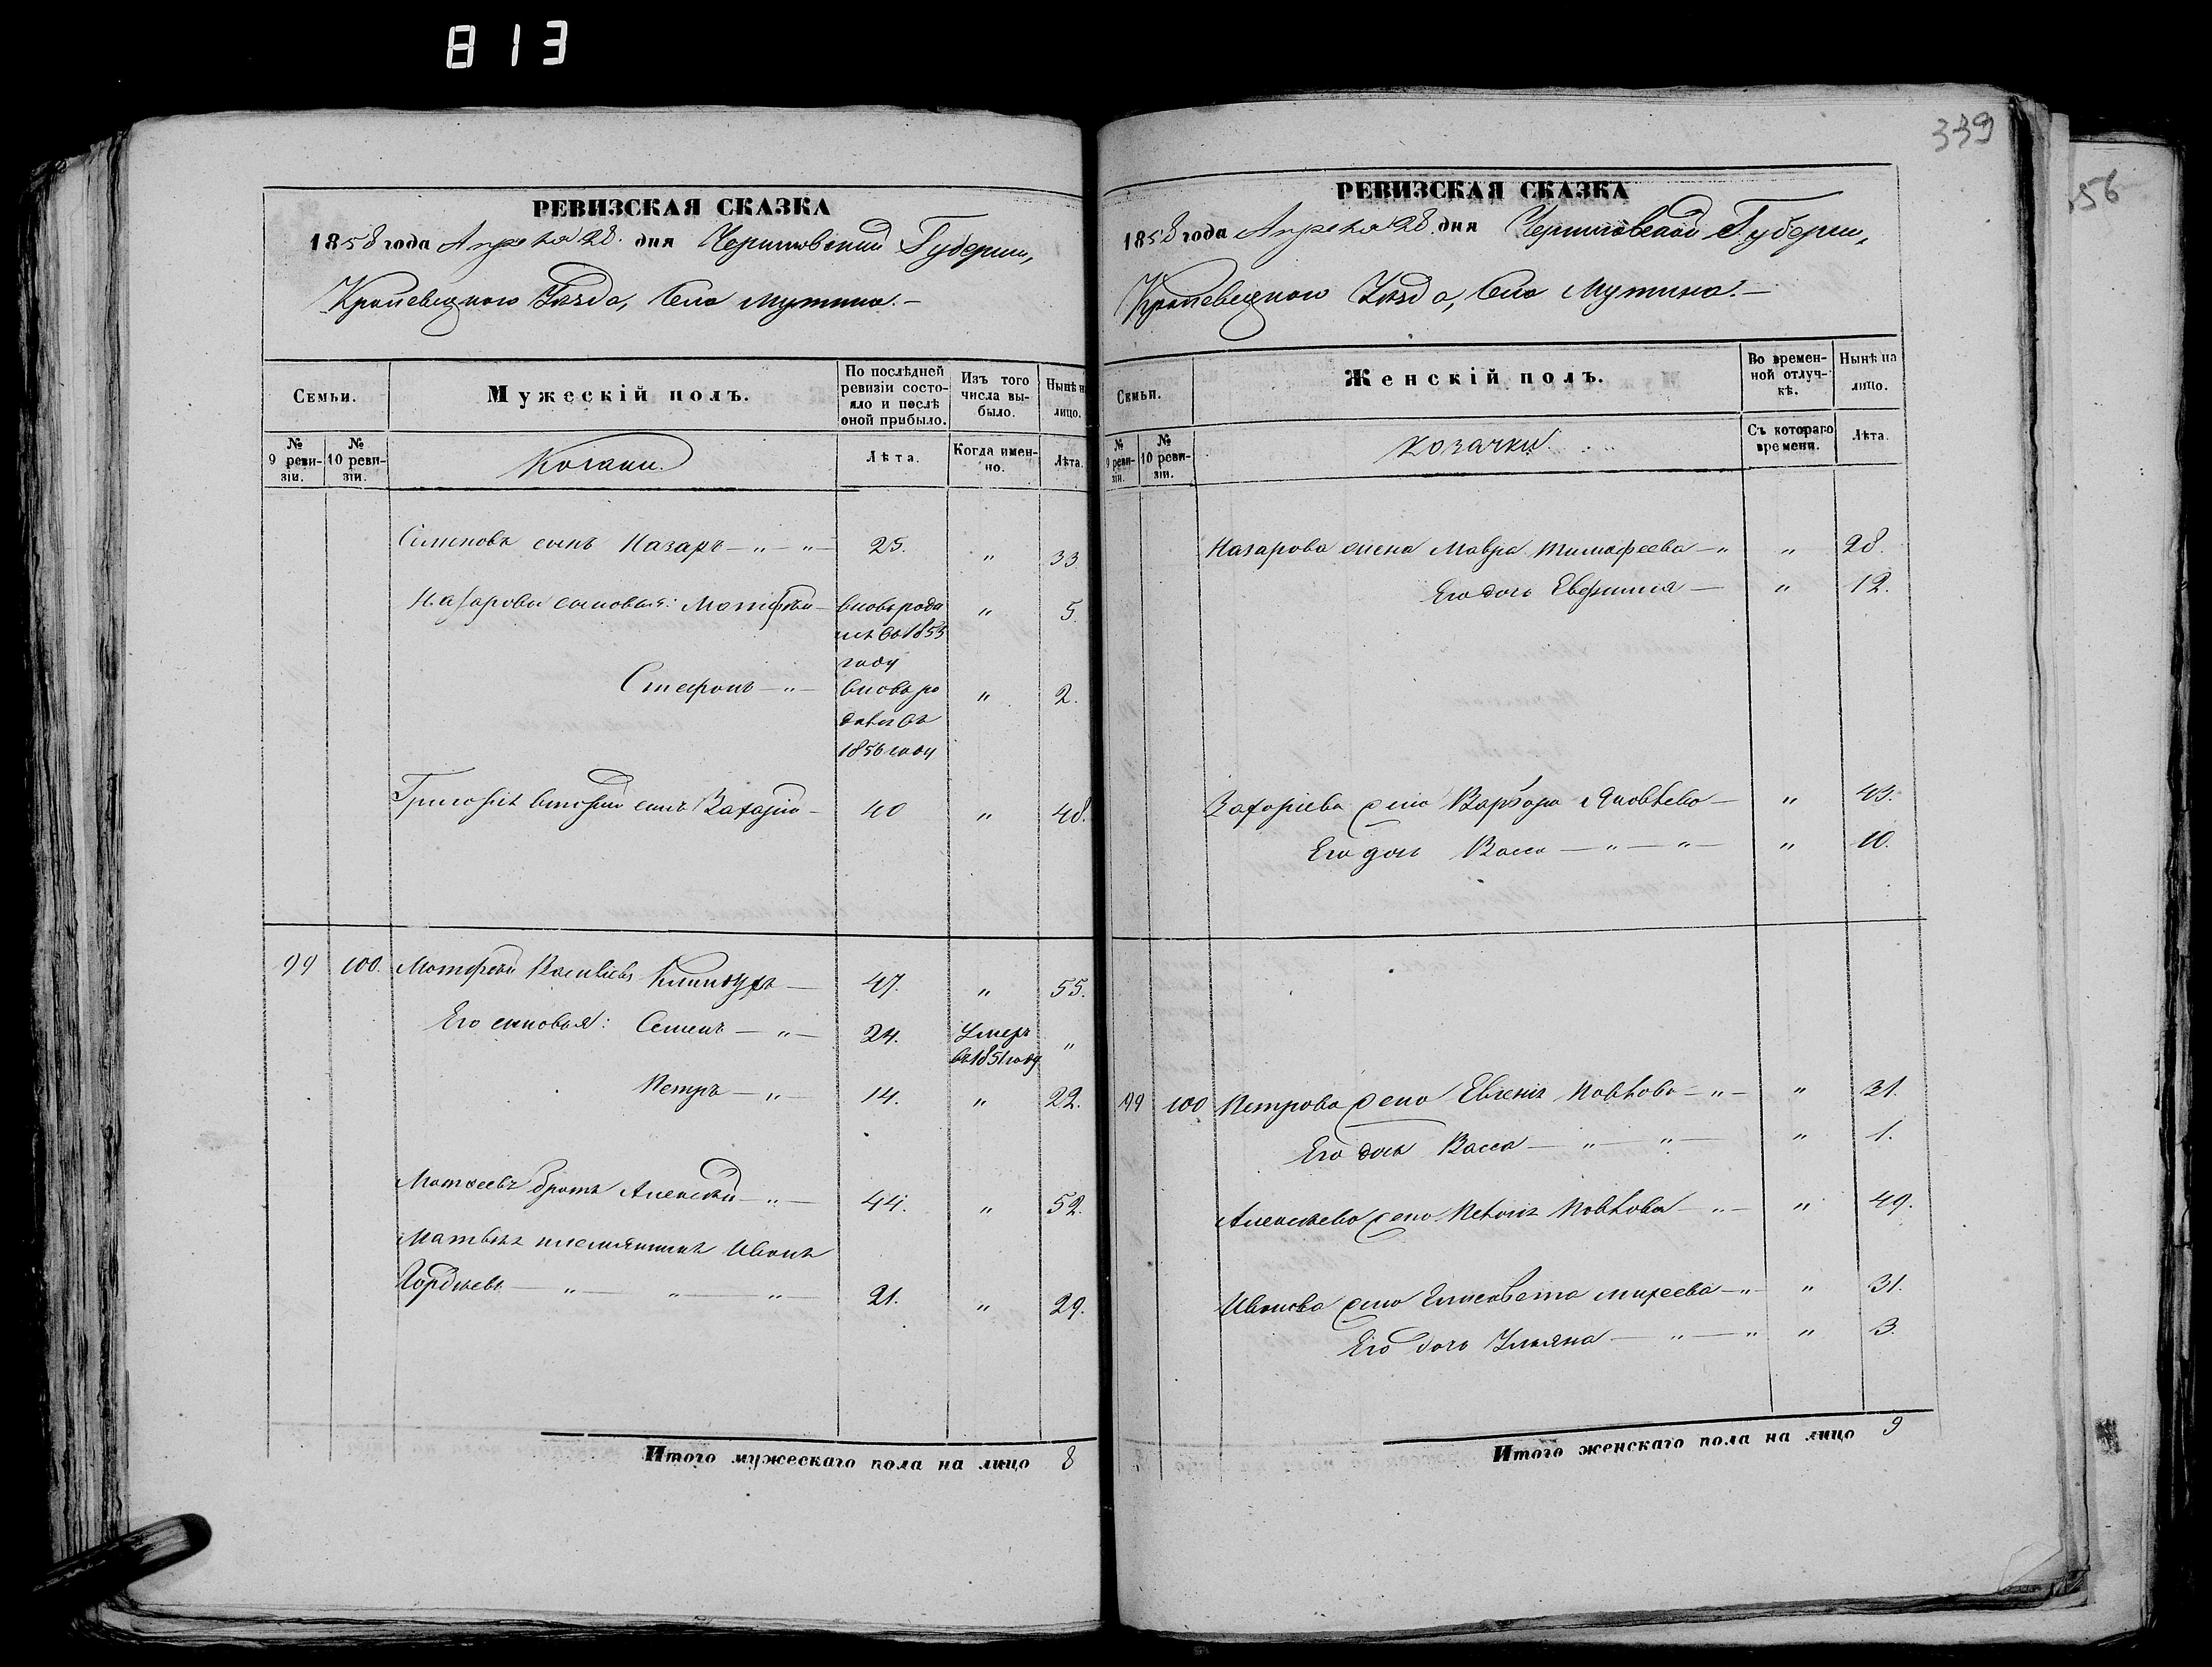 813
РЕВИЗСКАЯ СКАЗКА
1858 года Апреля 28. дня Черниговской Губернии,
Кролевецкого Уезда, Села Мутина.—
Семьи.
Мужескій полъ.
По послѣдней ревизіи состояло и послѣ оной прибыло.
Изъ того числа выбыло.
Нынѣ на лицо.
№ 9 ревизіи.
№ 10 ревизіи.
Козаки.
Лѣта.
Когда именно.
Лѣта.
Семенова сынъ Назаръ — " — " — 25. " 33
Назаровы сыновья: Матфей — вновь роди " 5.
лся въ 1855
году
Стефанъ — " — вновь ро " 2.
дился въ
1856 году
Григорія вторый сынъ Захарій — 40 " 48.
99 100. Матфей Васильевъ — 47. " 55.
Его сыновья: Семенъ — " — 24. Умеръ "
въ 1851 году
Петръ — " — 14. " 22.
Матвеевъ братъ Алексей — " — 44. " 52.
Матвея племянникъ Иванъ
Гордеевъ — " — " — " — 21. " 29.
Итого мужескаго пола на лицо 8
339
РЕВИЗСКАЯ СКАЗКА
1858 года Апреля 28. дня Черниговской Губернии,
Кролевецкого Уезда, Села Мутина.—
Семьи.
Женскій полъ.
Во временной отлучкѣ.
Нынѣ на лицо.
№ 9 ревизіи.
№ 10 ревизіи.
Козачки.
Съ котораго времени.
Лѣта.
Назарова жена Мавра Тимофеева — " " 28.
Его дочь Евфимия — " 12.
Захаріева жена Варвара Яковлева — " 43.
Его дочь Васса — " — " — " 10.
99 100 Петрова жена Евгенія Павлова — " — " 31.
Его дочь Васса — " — " — " 1.
Алексеева жена Павлова — " — " 49.
Иванова жена Елисавета Михеева — " — " 31.
Его дочь Ульяна — " — " " 3.
Итого женскаго пола на лицо 9
56